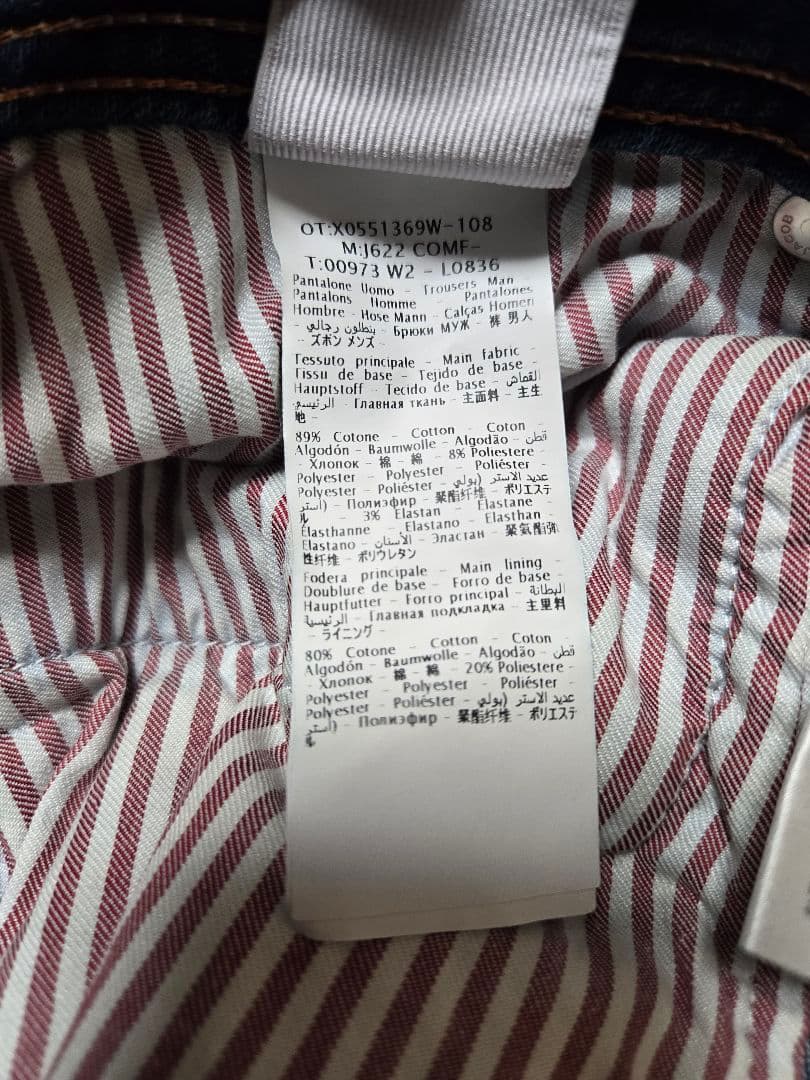 OT:X0551369W-108
M:J622 COMF-
T:00973 W2 - L0836
Pantalone Uomo - Trousers Man -
Pantalons Homme - Pantalones
Hombre - Hose Mann - Calças Homem
- بنطلون رجالي - Брюки МУЖ - 裤 男人
- ズボン メンズ -
Tessuto principale - Main fabric -
Tissu de base - Tejido de base -
Hauptstoff - Tecido de base - القماش
الرئيسي - Главная ткань - 主面料 - 主生
地 -
89% Cotone - Cotton - Coton -
Algodón - Baumwolle - Algodão - قطن
- Хлопок - 棉 - 綿 - 8% Poliestere
Polyester - Polyester - Poliéster -
Polyester - Poliéster - عديد الاستر (بولي
أستر) - Полиэфир - 聚酯纤维 - ポリエステ
ル - 3% Elastan - Elastane -
Élasthanne - Elastano - Elasthan -
Elastano - الأستان - Эластан - 聚氨酯弹
性纤维 - ポリウレタン
Fodera principale - Main lining -
Doublure de base - Forro de base -
Hauptfutter - Forro principal - البطانة
الرئيسية - Главная подкладка - 主里料
- ライニング -
80% Cotone - Cotton - Coton -
Algodón - Baumwolle - Algodão - قطن
- Хлопок - 棉 - 綿 - 20% Poliestere
Polyester - Polyester - Poliéster -
Polyester - Poliéster - عديد الاستر (بولي
أستر) - Полиэфир - 聚酯纤维 - ポリエステ
ル